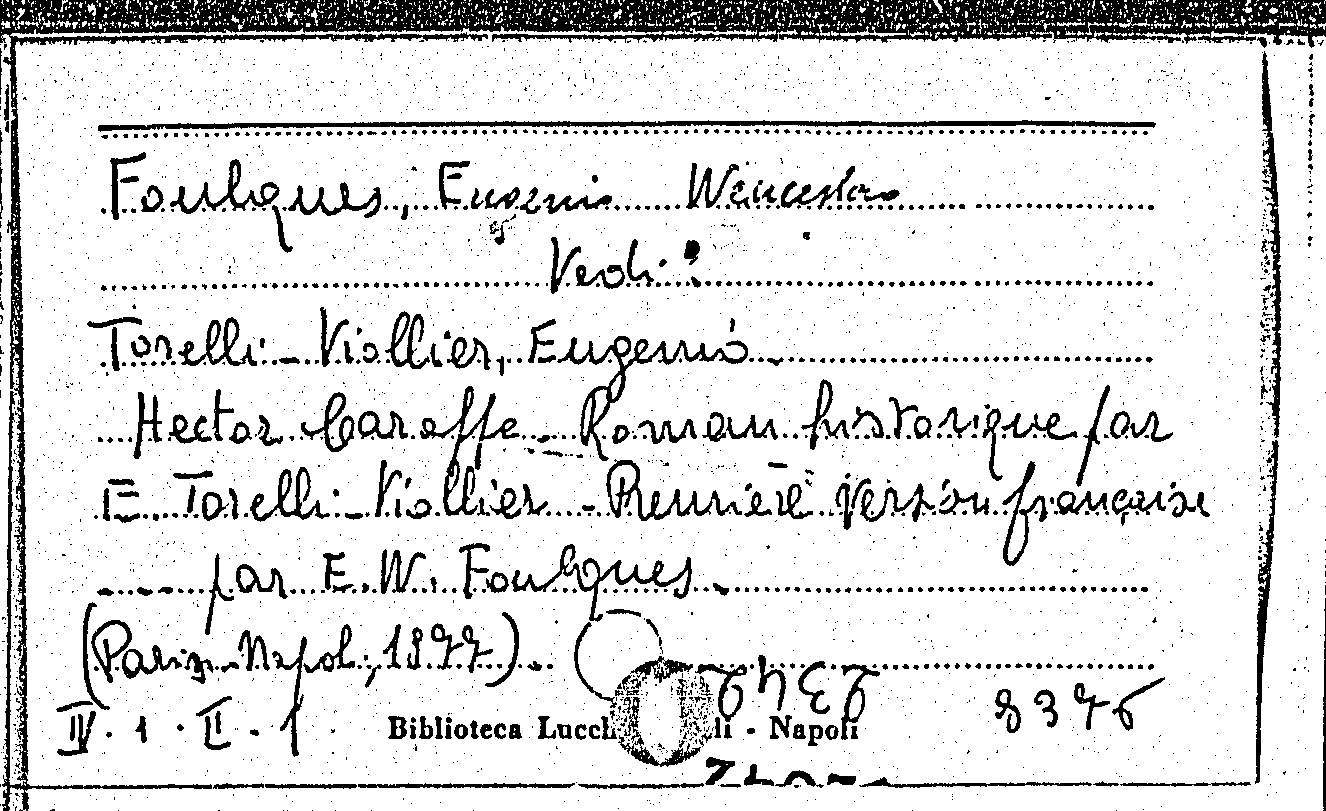 Foulques, Eugenio Wenceslao
Vedi:
Torelli-Viollier, Eugenio -
Hector Caraffe - Roman historique par
E. Torelli-Viollier - Première version française
par E. W. Foulques -
(Paris-Napoli, 1877).
IV. 1. II. 1 Biblioteca - Napoli 8376